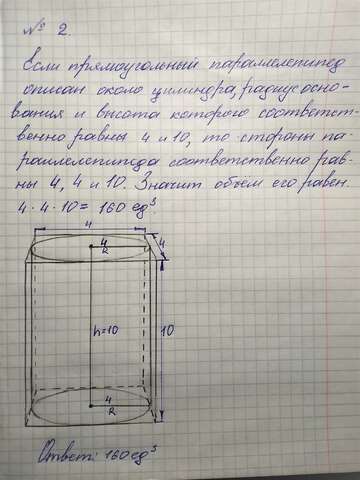 № 2.
Если прямоугольный параллелепипед
описан около цилиндра, радиус осно-
вания и высота которого соответст-
венно равны 4 и 10, то стороны па-
раллелепипеда соответственно рав-
ны 4, 4 и 10. Значит объём его равен
4 · 4 · 10 = 160 ед³.
4
4
4
R
h=10
10
4
R
Ответ: 160 ед³